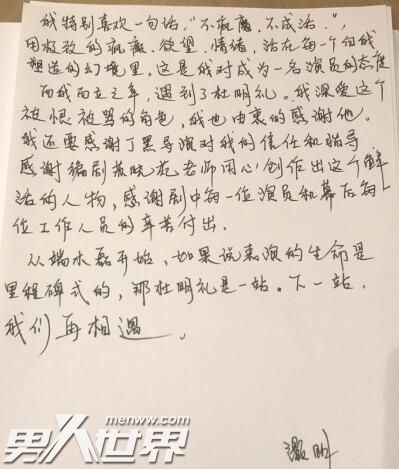 我特别喜欢一句话,“不疯魔,不成活。”,
用极致的疯癫、欲望、情绪,活在每一个自我
塑造的幻境里。这是我对成为一名演员的态度
而我而立之年,遇到了杜明礼。我深爱这个
被恨被骂的角色,我也由衷的感谢他。
我还要感谢丁黑导演对我的信任和指导
感谢编剧苏晓苑老师用心创作出这个鲜
活的人物,感谢剧中每一位演员和幕后每一
位工作人员的辛苦付出。
从端木磊开始,如果说表演的生命是
里程碑式的,那杜明礼是一站。下一站,
我们再相遇。
灏明
menww.com
男人世界